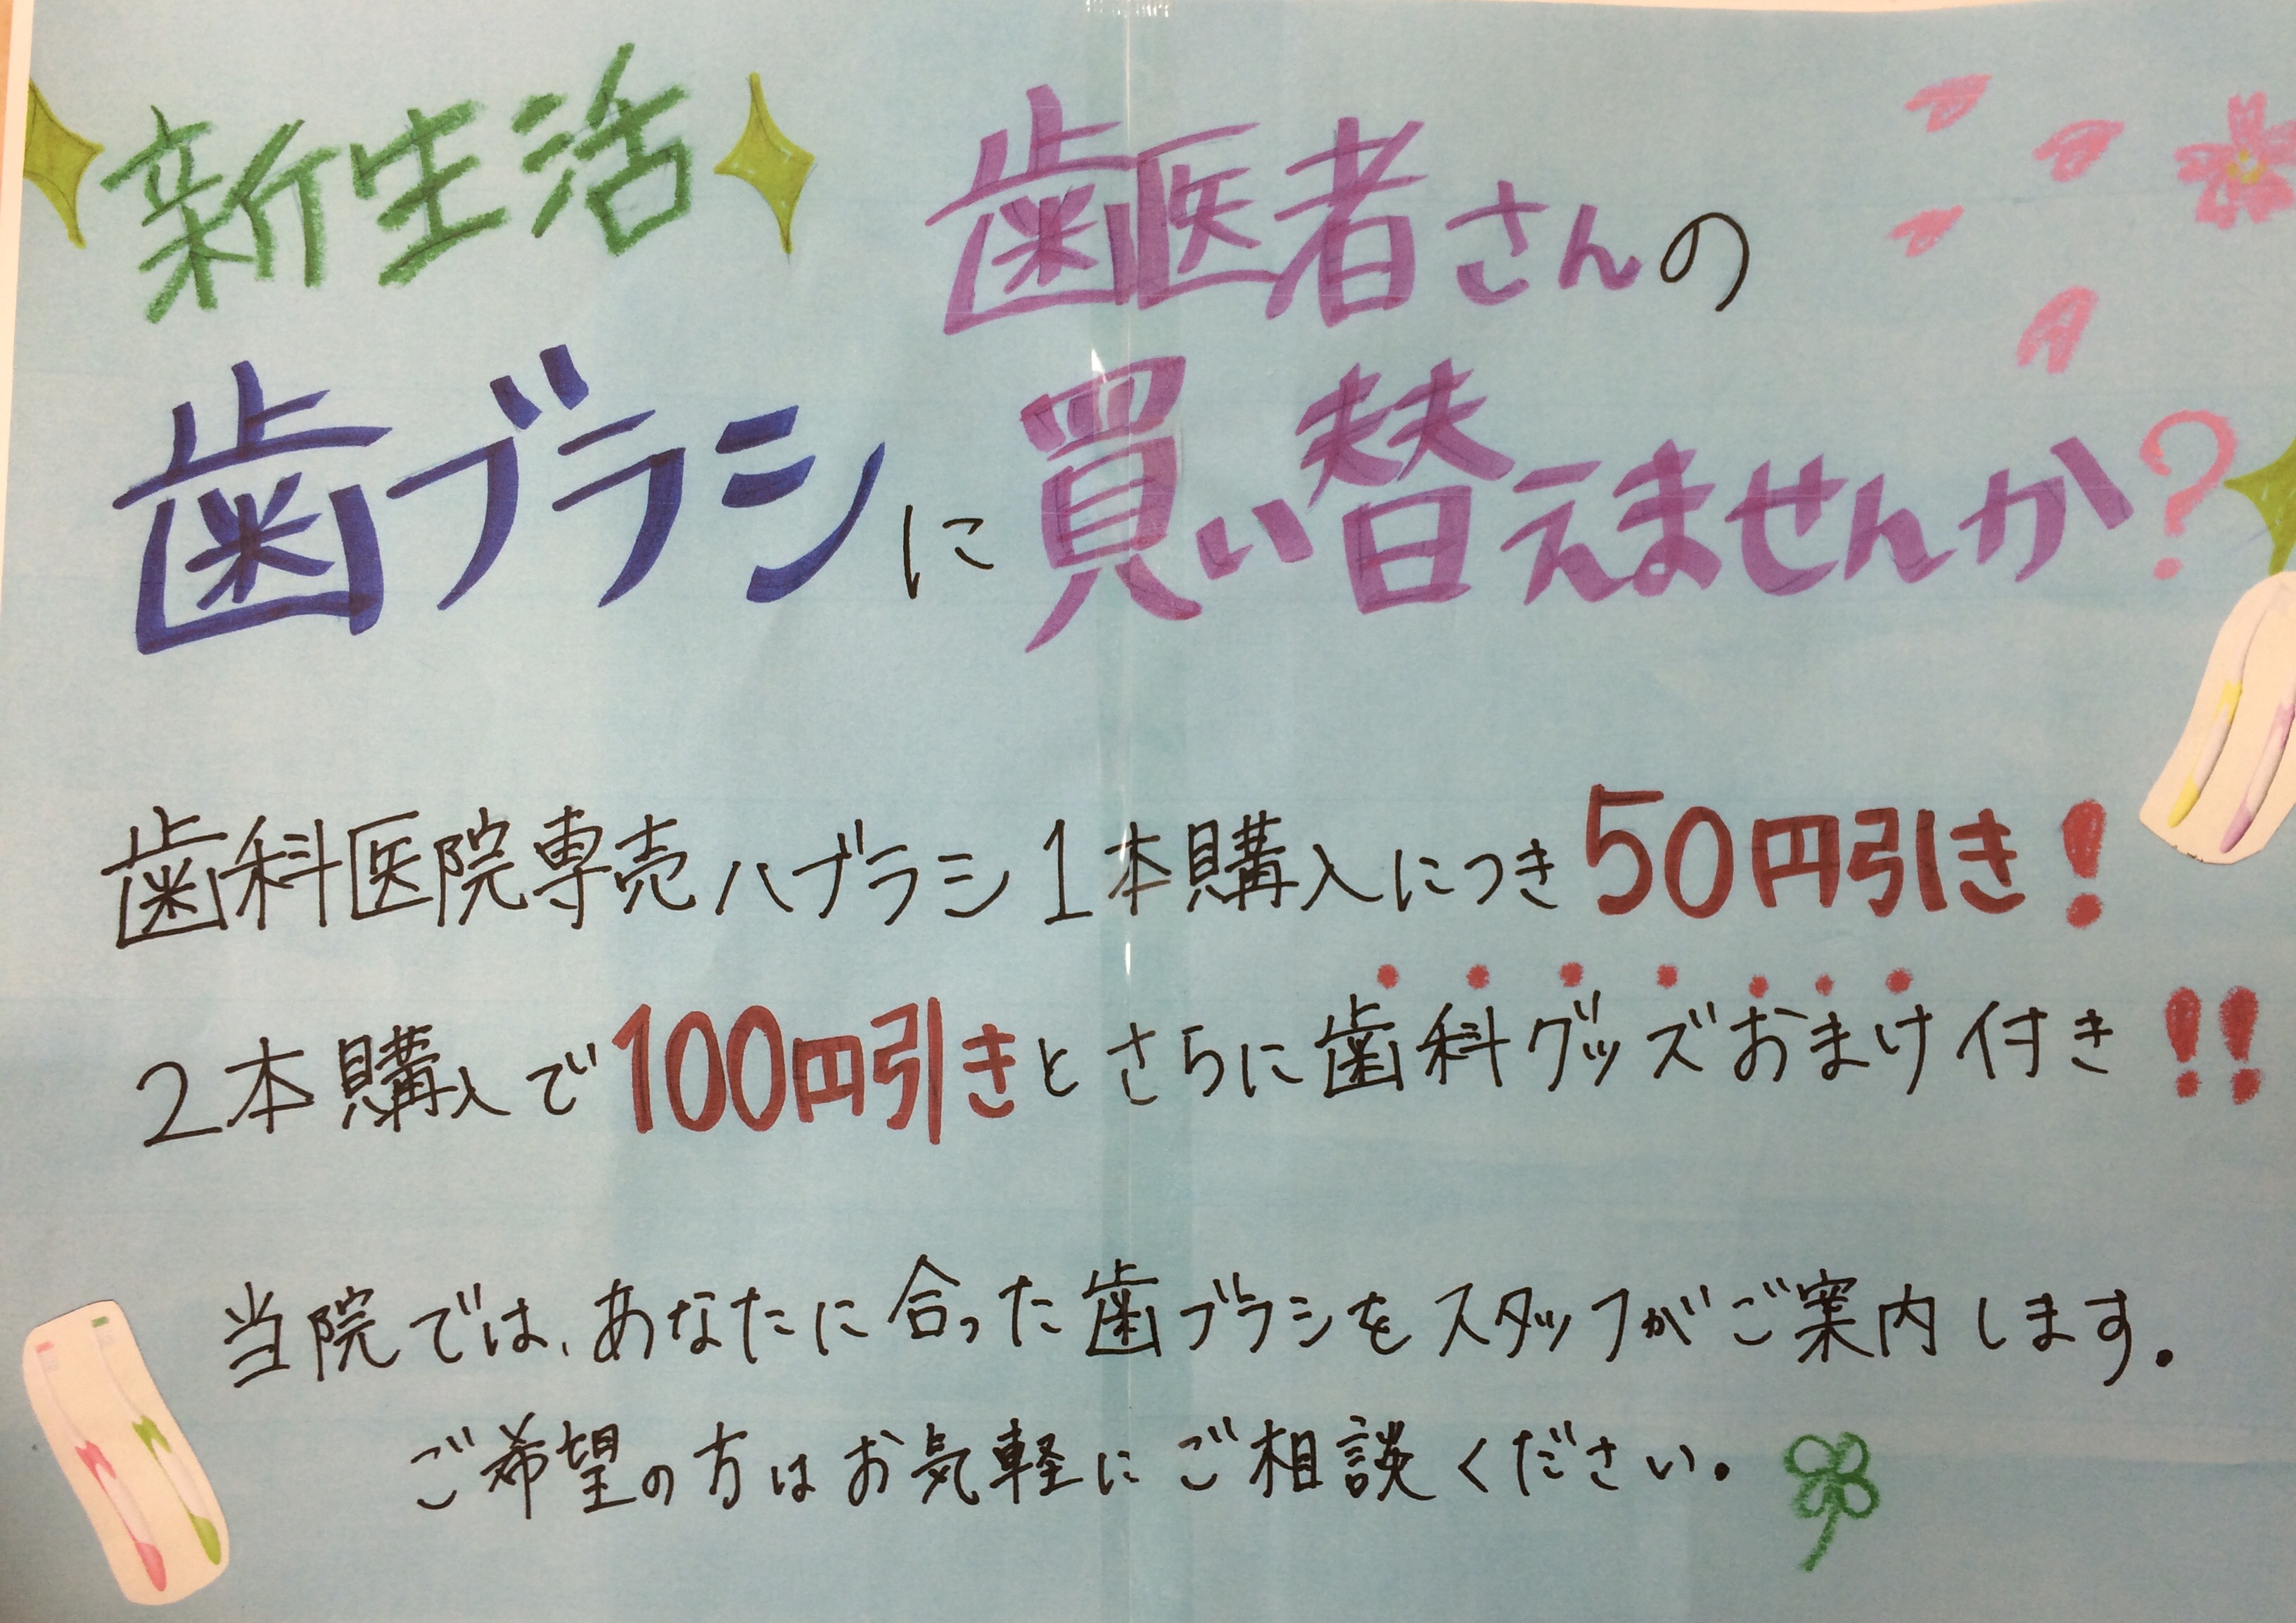 新生活 歯医者さんの
歯ブラシに買い替えませんか?
歯科医院専売ハブラシ1本購入につき50円引き!
2本購入で100円引きとさらに歯科グッズおまけ付き!!
当院では、あなたに合った歯ブラシをスタッフがご案内します。
ご希望の方はお気軽にご相談ください。